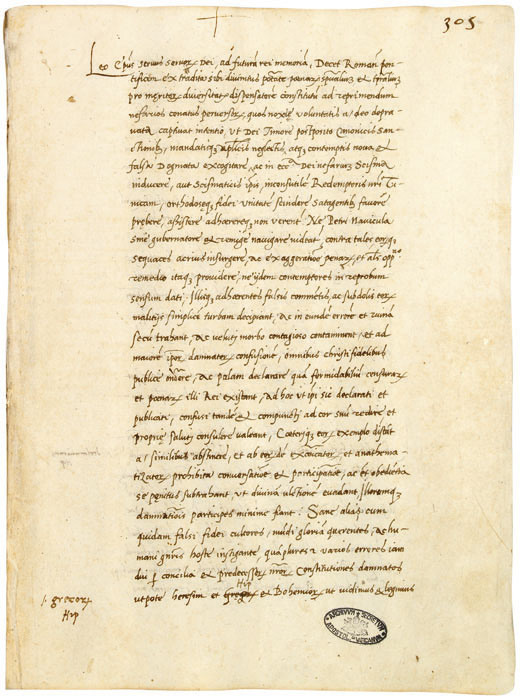 305
Leo Ep̃us servus servoꝝ Dei, ad futurā rei memoriā, Decet Romanū pon-
tificem ex tradita sibi divinitus potãte poenaꝝ sp̃ualiuꝫ et tp̃raliuꝫ
pro meritoꝝ diversitate dispensatorē constitutū ad reprimendum
nefarios conatus perversoꝝ, quos noxiẹ voluntatis adeo depra-
vata captivat intentio, ut Dei Timore postposito Canonicis San-
ctionibꝫ, mandatisqꝫ ap̃licis neglectis, atqꝫ contemptis nova, et
falsa Dogmata excogitare, ac in ecc.ᵃ Dei nefarium Scisma
inducere, aut Scismaticis ip̃is, inconsutilē Redemptoris nr̃i Tu-
nicam, orthodoxẹqꝫ fidei unitatē scindere satagentibꝫ favorē
prẹbere, assistere adhaerereqꝫ non verent̃. Ne Petri Navicula
sine gubernatore et remige navigare videat̃, contra tales eorqꝫ
sequaces acrius insurgere, ac exaggeratione penaꝝ, et al's opp.ⁿᵒ
remedio itaqꝫ providere, ne ijdem contemptores in reprobum
sensum dati, Illisqꝫ adhaerentes falsis commentis, ac subdolis eoꝝ
malitijs simplicē turbam decipiant, ac in eundē errorē et ruinā
secū trahant, ac veluti morbo contagioso contaminent, et ad
maiorē ip̃oꝝ damnatoꝝ confusionē, omnibus christi fidelibus
publicẹ        , ac palam declarare quā formidabiliū censuraꝝ
et poenaꝝ illi Rei existant, Ad hoc ut ip̃i sic declarati et
publicati, confusi tandē et compuncti ad cor suū redire et
propriẹ saluti consulere valeant, Coeteriqꝫ eoꝝ exemplo
a similibus abstinere, et ab eoꝝ de excōicatoꝝ, et anathema-
tizatoꝝ prohibita conversatione et participatione, ac et obedientia
se penitus subtrahant ut divinā ultionē evadant, Illorumqꝫ
damnationis participes minimẹ fiant: Sanẹ alias cum
quidam falsi fidei cultores, mundi gloriā querentes, ac hu-
mani gñris hoste instigante, quāplures et varios errores iam
     concilia et predecessoꝝ nr̃oꝝ Constitutiones damnatos
Hip
utpote heresim et        et Bohemoꝝ, ut vidimus et legimus
l. grecoꝝ
Hip
ARCHIVVM SECRETVM APOSTOL. VATICANVM